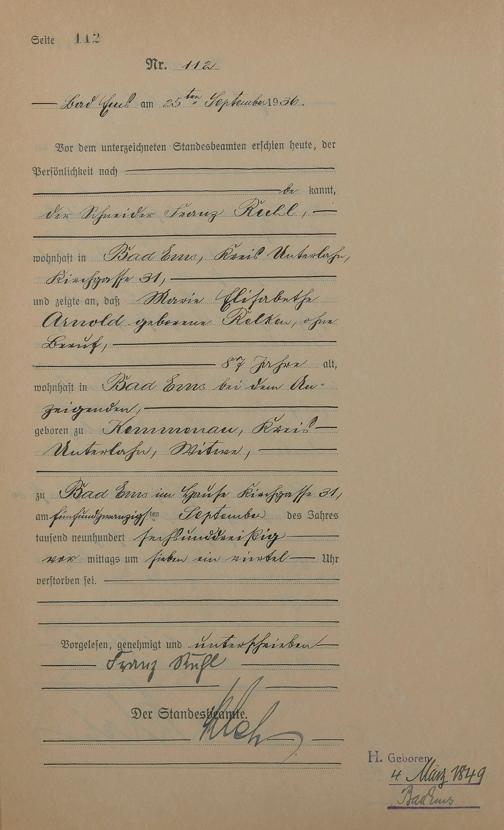 Seite 112
Nr. 112
Bad Ems am 25ten September 1936.
Vor dem unterzeichneten Standesbeamten erschien heute, der
Persönlichkeit nach
be kannt,
der Schneider Franz Ruhl,
wohnhaft in Bad Ems, Kreis Unterlahn,
Kirchgasse 31,
und zeigte an, daß Marie Elisabethe
Arnold geborene, ohne
Beruf,
87 Jahre alt,
wohnhaft in Bad Ems bei dem An-
zeigenden,
geboren zu Kemmenau, Kreis
Unterlahn, Witwe,
zu Bad Ems im Hause Kirchgasse 31,
am fünfundzwanzigsten September des Jahres
tausend neunhundert sechsunddreißig
vor mittags um sieben ein viertel Uhr
verstorben sei.
Vorgelesen, genehmigt und unterschrieben
Franz Ruhl
Der Standesbeamte.
H. Geboren
4 März 1849
Bad Ems